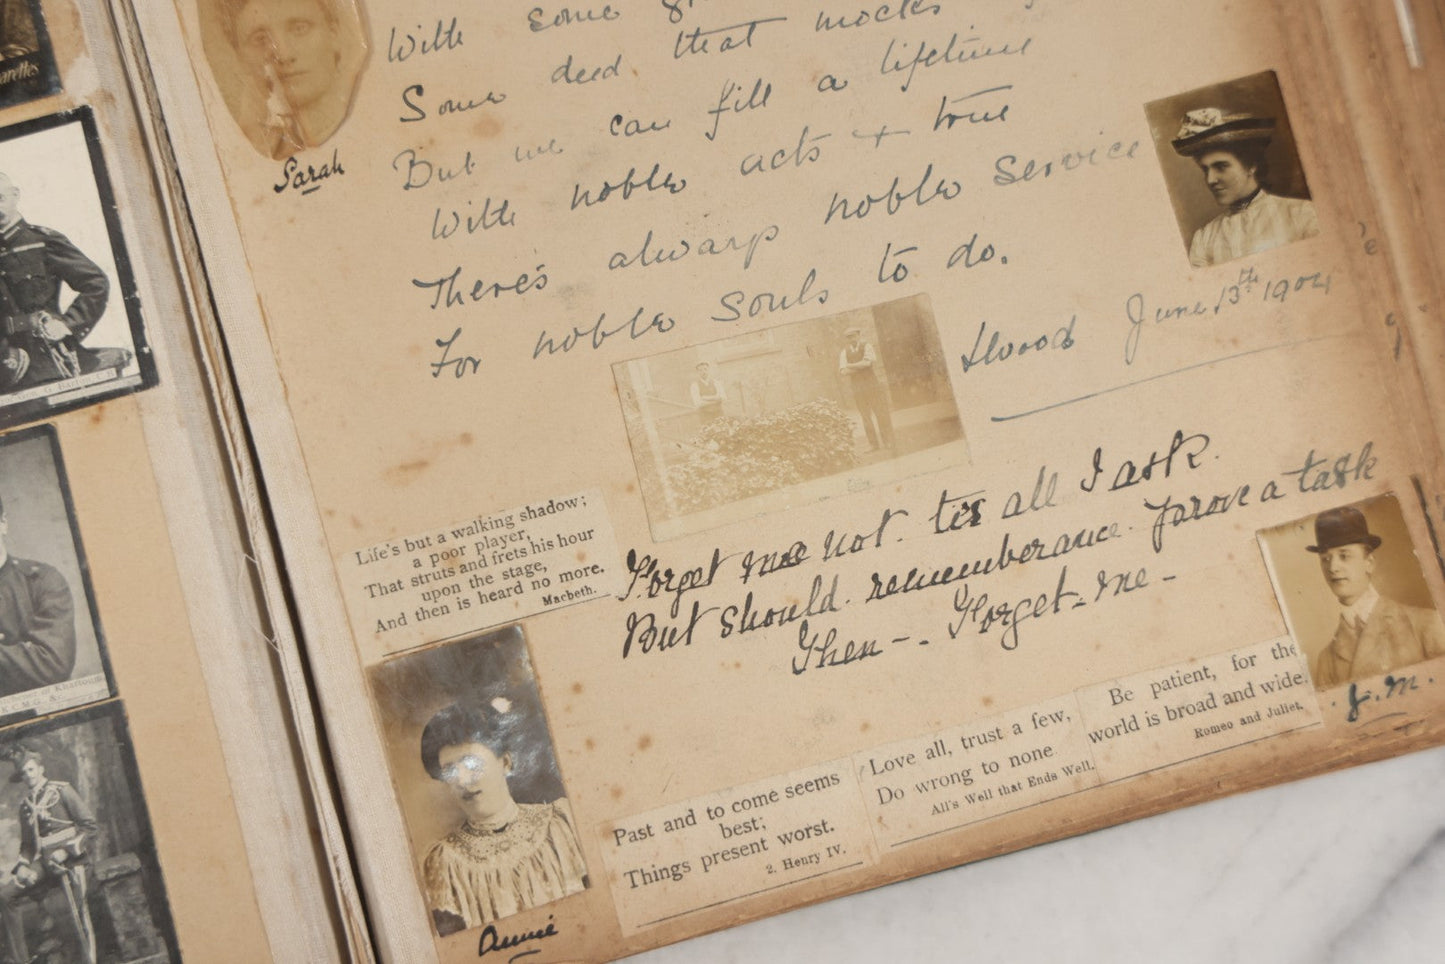 With some
Some deed that mocks
But we can fill a lifetime
With noble acts + true
There's always noble service
For noble souls to do.
Hood June 13th 1904
Sarah
Life's but a walking shadow;
a poor player,
That struts and frets his hour
upon the stage,
And then is heard no more.
Macbeth.
Forget me not. tis all I ask.
But should. remembrance. prove a task
Then - . Forget - me -
Past and to come seems
best;
Things present worst.
2. Henry IV.
Love all, trust a few,
Do wrong to none
All's Well that Ends Well.
Be patient, for the
world is broad and wide.
Romeo and Juliet.
J. M.
Annie
arettes
of Khartoum
K.C.M.G.